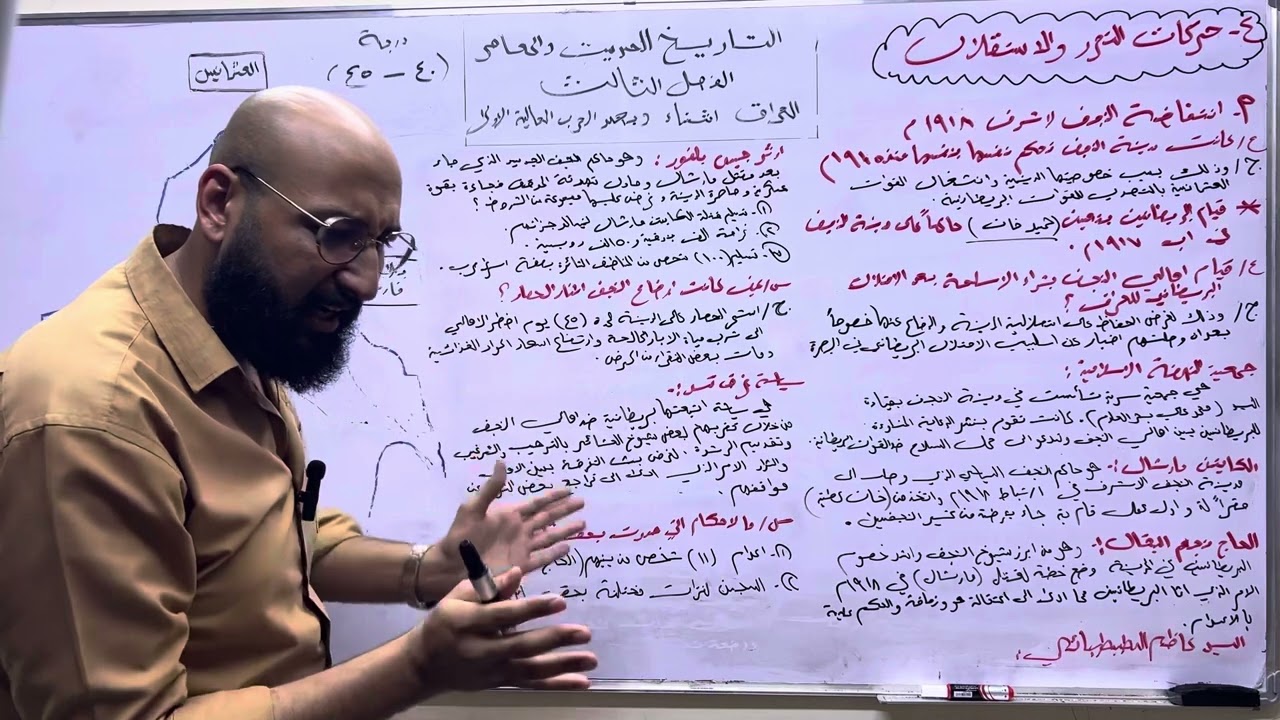 ٤- حركات التحرر والاستقلال
التاريخ الحديث والمعاصر
الفصل الثالث
العراق اثناء وبعد الحرب العالمية الاولى
درجة
(٤٠ – ٤٥)
العثمانيين
٢- انتفاضة النجف الاشرف ١٩١٨م
ع/ كانت مدينة النجف تحكم نفسها بنفسها منذ
ج/ وذلك بسبب خصوصيتها الدينية وانشغال القوات
العثمانية بالتصدي للقوات البريطانية.
* قيام البريطانيين بتعيين (حميد خان) حاكماً على مدينة النجف
في اب ١٩١٧م.
ع/ قيام اهالي النجف بشراء الاسلحة بعد الاحتلال
البريطاني للعراق؟
ج/ وذلك لغرض الحفاظ على استقلالية المدينة والدفاع عنها خصوصاً
بعد وصلتهم اخبار عن اساليب الاحتلال البريطاني في البصرة
جمعية النهضة الاسلامية:
هي جمعية سرية تأسست في مدينة النجف بقيادة
السيد (محمد علي بحر العلوم). كانت تقوم بنشر الدعاية المضادة
للبريطانيين بين اهالي النجف وتدعو الى حمل السلاح ضد القوات البريطانية.
الكابتن مارشال:- هو حاكم النجف السياسي الذي وصل الى
مدينة النجف الاشرف في ١ شباط ١٩١٨م واتخذ من (خان عطية)
مقراً له و اول عمل قام به جاء بشرطة من غير النجفيين.
الحاج نجم البقال:- وهو من ابرز شيوخ النجف واشد خصوم
البريطانيين في المدينة وضع خطة لقتل (مارشال) في ١٩١٨م
الامر الذي اثار البريطانيين مما ادى الى اعتقاله هو ورفاقه والحكم عليه
بالاعدام.
السيد كاظم الطباطبائي:
وهو حاكم النجف الجديد الذي جاء
بعد مقتل مارشال وحاول تهدئة الموقف فجاء بقوة
عسكرية وحاصر المدينة وفرض عليهم مجموعة من الشروط؟
١- تسليم قتلة الكابتن مارشال لينالوا جزائهم.
٢- غرامة الف بندقية و ٥٠ الف روبية.
٣- تسليم (١٠٠) شخص من المناطق الثائرة بصفة اسرى حرب.
س/ كيف كانت اوضاع النجف اثناء الحصار؟
ج/ استمر الحصار على المدينة لمدة (٤٥) يوم اضطر الاهالي
الى شرب مياه الابار المالحة وارتفاع اسعار المواد الغذائية
ومات بعض الفقراء من المرض.
سياسة فرق تسد:-
هي سياسة اتبعتها بريطانيا ضد اهالي النجف
من خلال بعض شيوخ العشائر بالترهيب والترغيب
وتقديم الرشوة لغرض بث الفرقة بين
الامر الذي الى تراجع بعض
مواقفهم.
س/ ما الاحكام التي صدرت بعد
١- اعدام (١١) شخص من بينهم (الحاج
٢- السجن لفترات مختلفة